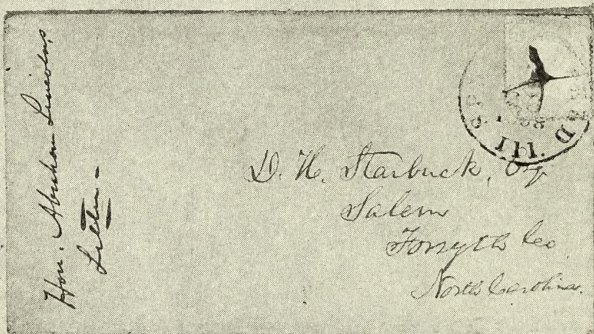 Hon. Abraham Lincoln's
Letter -
D. H. Starbuck, Esq
Salem
Forsyth Co
North Carolina.
ILL.